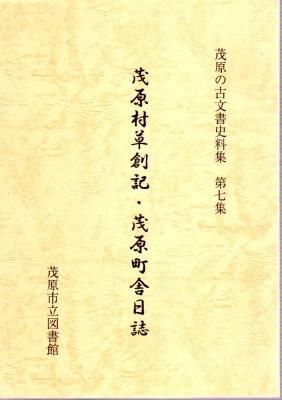 茂原の古文書史料集　第七集
茂原村草創記・茂原町舎日誌
茂原市立図書館